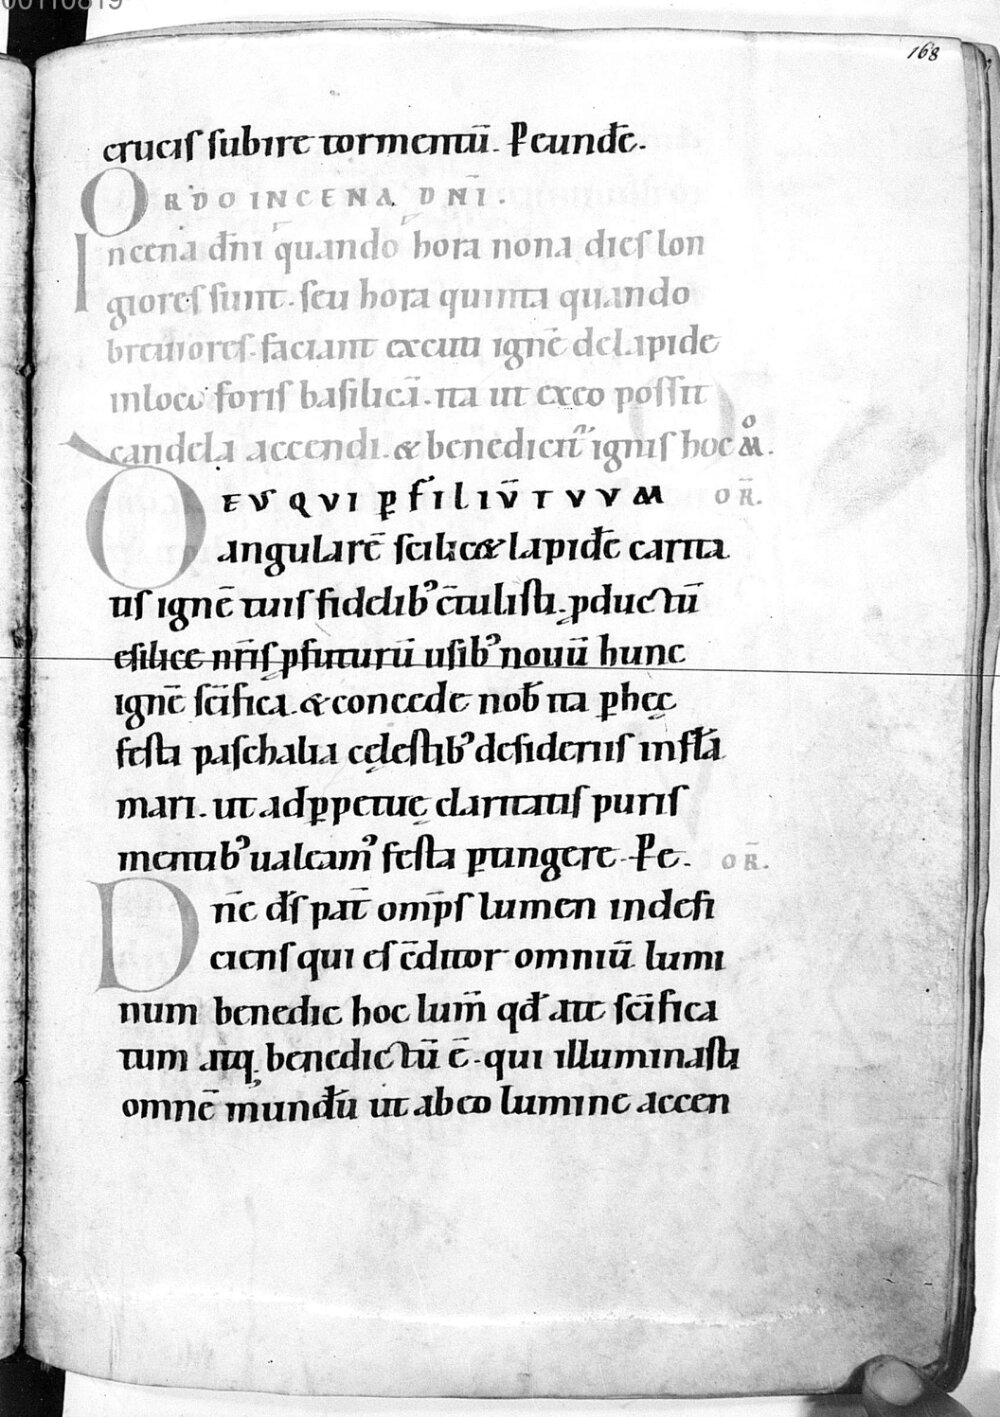 00110819
168
crucis subire tormentū. P eundē.
ORDO IN CENA DNĪ.
In cena dn̄i quando hora nona dies lon
giores sunt. seu hora quinta quando
breuiores. faciant excuti ignē de lapide
in loco foris basilicā. ita ut ex eo possit
candela accendi. & benedicit̄ ignis hoc mͦ.
DEUS QVI p̲ FILIV̄ TVVM OR̄.
angularē scilic& lapidē carita
tis ignē tuis fidelib᾽ c̄tulisti. productū
e silice nr̄is profuturū usib᾽ nouū hunc
ignē sc̄ifica. & concede nob̄ ita p̲ hęc
festa paschalia cęlestib᾽ desideriis inflā
mari. ut ad p̲petuę claritatis puris
mentib᾽ ualeam᾽ festa p̲tingere. P e. OR̄.
Dn̄e d̄s pat̄ omp̄s lumen indefi
ciens qui es c̄ditor omniū lumi
num benedic hoc lum̄ qd̄ a te sc̄ifica
tum atq; benedictū ē. qui illuminasti
omnē mundū ut ab eo lumine accen